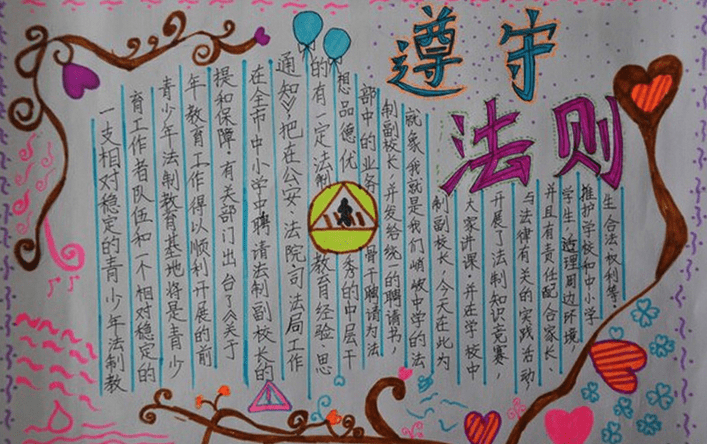 遵守
法则
一支相对稳定的青少年法制教
育工作者队伍和一个相对稳定的
青少年法制教育基地将是青少
年教育工作得以顺利开展的前
提和保障,有关部门出台了《关于
在全市中小学中聘请法制副校长的
通知》,把在公安、法院司法局工作
的有一定法制教育经验、思
想品德优秀的中层干
部中的业务骨干聘请为法
制副校长,并发给统一的聘请书,
就象我就是我们峭岐中学的法
制副校长,今天在此为
大家讲课,并在学校中
开展了法制知识竞赛,
与法律有关的实践活动
并且有责任配合家长、
学生,理周边环境,
推护学校和中小学
生合法权利等,